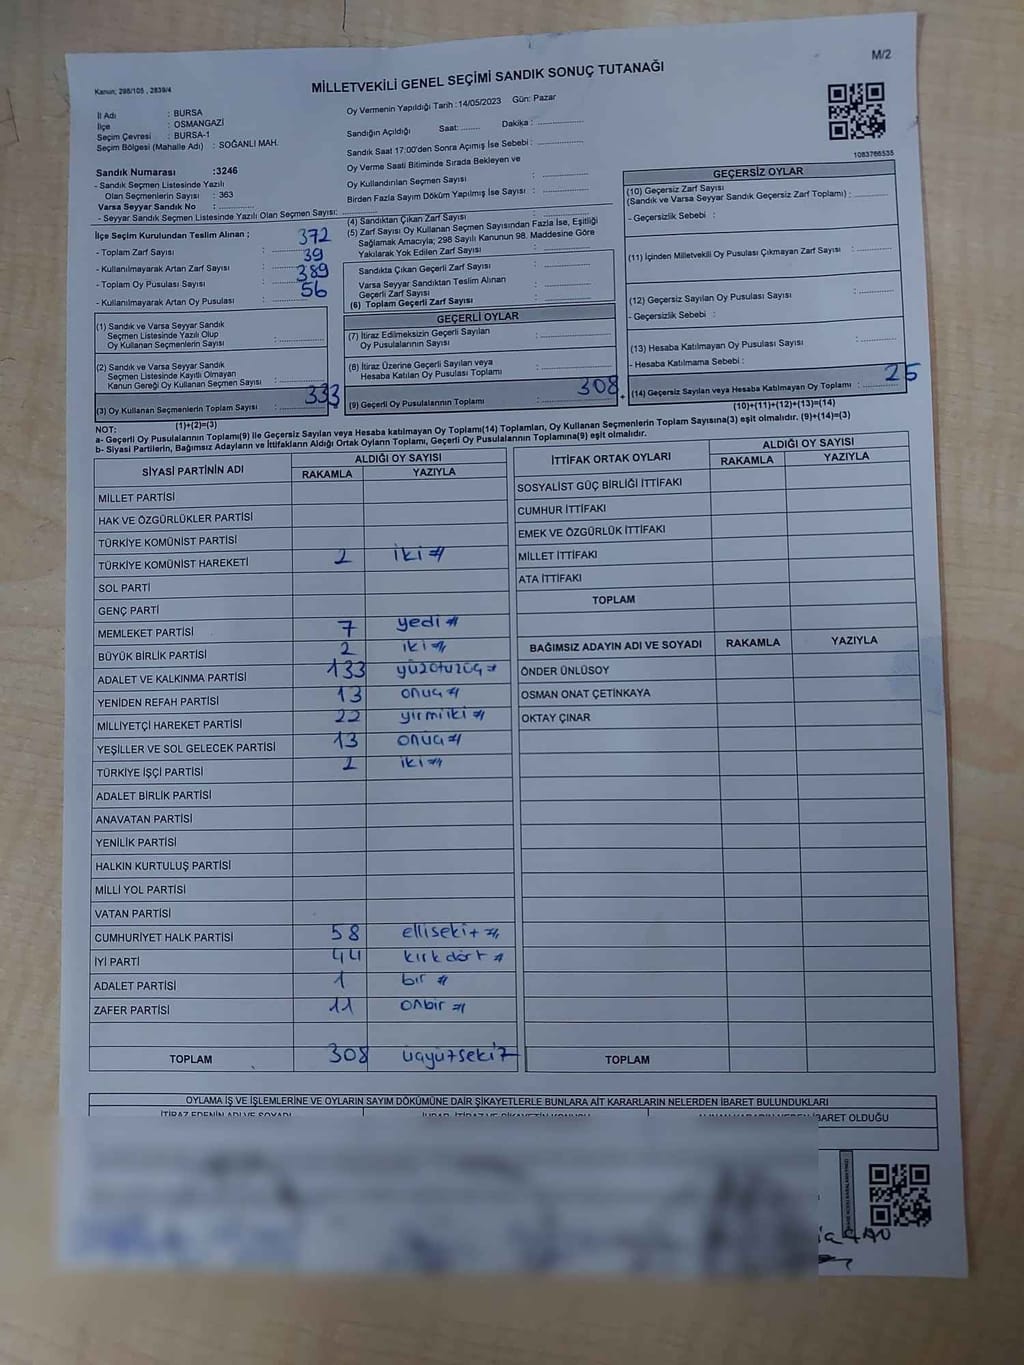 M/2
Kanun; 298/105 , 2839/4
MİLLETVEKİLİ GENEL SEÇİMİ SANDIK SONUÇ TUTANAĞI
İl Adı : BURSA
İlçe : OSMANGAZİ
Seçim Çevresi : BURSA-1
Seçim Bölgesi (Mahalle Adı) : SOĞANLI MAH.
Sandık Numarası :3246
- Sandık Seçmen Listesinde Yazılı
Olan Seçmenlerin Sayısı : 363
Varsa Seyyar Sandık No : ............
- Seyyar Sandık Seçmen Listesinde Yazılı Olan Seçmen Sayısı: ............
Oy Vermenin Yapıldığı Tarih :14/05/2023 Gün: Pazar
Sandığın Açıldığı Saat: ........ Dakika : ................
Sandık Saat 17:00'den Sonra Açımış İse Sebebi : ................
Oy Verme Saati Bitiminde Sırada Bekleyen ve
Oy Kullandırılan Seçmen Sayısı : ................
Birden Fazla Sayım Döküm Yapılmış İse Sayısı : ................
1083766535
İlçe Seçim Kurulundan Teslim Alınan ;
- Toplam Zarf Sayısı : 372
- Kullanılmayarak Artan Zarf Sayısı : 39
- Toplam Oy Pusulası Sayısı : 389
- Kullanılmayarak Artan Oy Pusulası : 56
(1) Sandık ve Varsa Seyyar Sandık
Seçmen Listesinde Yazılı Olup
Oy Kullanan Seçmenlerin Sayısı : ............
(2) Sandık ve Varsa Seyyar Sandık
Seçmen Listesinde Kayıtlı Olmayan
Kanun Gereği Oy Kullanan Seçmen Sayısı : ............
(3) Oy Kullanan Seçmenlerin Toplam Sayısı : 333
(1)+(2)=(3)
(4) Sandıktan Çıkan Zarf Sayısı : ............
(5) Zarf Sayısı Oy Kullanan Seçmen Sayısından Fazla İse, Eşitliği
Sağlamak Amacıyla; 298 Sayılı Kanunun 98. Maddesine Göre
Yakılarak Yok Edilen Zarf Sayısı : ............
Sandıkta Çıkan Geçerli Zarf Sayısı : ............
Varsa Seyyar Sandıktan Teslim Alınan
Geçerli Zarf Sayısı : ............
(6) Toplam Geçerli Zarf Sayısı : ............
GEÇERLİ OYLAR
(7) İtiraz Edilmeksizin Geçerli Sayılan
Oy Pusulalarının Sayısı : ............
(8) İtiraz Üzerine Geçerli Sayılan veya
Hesaba Katılan Oy Pusulası Toplamı : ............
(9) Geçerli Oy Pusulalarının Toplamı : 308
GEÇERSİZ OYLAR
(10) Geçersiz Zarf Sayısı
(Sandık ve Varsa Seyyar Sandık Geçersiz Zarf Toplamı) : ............
- Geçersizlik Sebebi :
(11) İçinden Milletvekili Oy Pusulası Çıkmayan Zarf Sayısı : ............
(12) Geçersiz Sayılan Oy Pusulası Sayısı : ............
- Geçersizlik Sebebi :
(13) Hesaba Katılmayan Oy Pusulası Sayısı : ............
- Hesaba Katılmama Sebebi :
(14) Geçersiz Sayılan veya Hesaba Katılmayan Oy Toplamı : 25
(10)+(11)+(12)+(13)=(14)
NOT:
a- Geçerli Oy Pusulalarının Toplamı(9) ile Geçersiz Sayılan veya Hesaba katılmayan Oy Toplamı(14) Toplamları, Oy Kullanan Seçmenlerin Toplam Sayısına(3) eşit olmalıdır. (9)+(14)=(3)
b- Siyasi Partilerin, Bağımsız Adayların ve İttifakların Aldığı Ortak Oyların Toplamı, Geçerli Oy Pusulalarının Toplamına(9) eşit olmalıdır.
SİYASİ PARTİNİN ADI ALDIĞI OY SAYISI
RAKAMLA YAZIYLA
MİLLET PARTİSİ
HAK VE ÖZGÜRLÜKLER PARTİSİ
TÜRKİYE KOMÜNİST PARTİSİ
TÜRKİYE KOMÜNİST HAREKETİ 2 iki #
SOL PARTİ
GENÇ PARTİ
MEMLEKET PARTİSİ 7 yedi #
BÜYÜK BİRLİK PARTİSİ 2 iki #
ADALET VE KALKINMA PARTİSİ 133 yüzotuzüç #
YENİDEN REFAH PARTİSİ 13 onüç #
MİLLİYETÇİ HAREKET PARTİSİ 22 yirmiiki #
YEŞİLLER VE SOL GELECEK PARTİSİ 13 onüç #
TÜRKİYE İŞÇİ PARTİSİ 2 iki #
ADALET BİRLİK PARTİSİ
ANAVATAN PARTİSİ
YENİLİK PARTİSİ
HALKIN KURTULUŞ PARTİSİ
MİLLİ YOL PARTİSİ
VATAN PARTİSİ
CUMHURİYET HALK PARTİSİ 58 ellisekiz #
İYİ PARTİ 44 kırkdört #
ADALET PARTİSİ 1 bir #
ZAFER PARTİSİ 11 onbir #
TOPLAM 308 üçyüzsekiz
İTTİFAK ORTAK OYLARI ALDIĞI OY SAYISI
RAKAMLA YAZIYLA
SOSYALİST GÜÇ BİRLİĞİ İTTİFAKI
CUMHUR İTTİFAKI
EMEK VE ÖZGÜRLÜK İTTİFAKI
MİLLET İTTİFAKI
ATA İTTİFAKI
TOPLAM
BAĞIMSIZ ADAYIN ADI VE SOYADI RAKAMLA YAZIYLA
ÖNDER ÜNLÜSOY
OSMAN ONAT ÇETİNKAYA
OKTAY ÇINAR
TOPLAM
OYLAMA İŞ VE İŞLEMLERİNE VE OYLARIN SAYIM DÖKÜMÜNE DAİR ŞİKAYETLERLE BUNLARA AİT KARARLARIN NELERDEN İBARET BULUNDUKLARI
İTİRAZ EDENİN ADI VE SOYADI
İBARET OLDUĞU